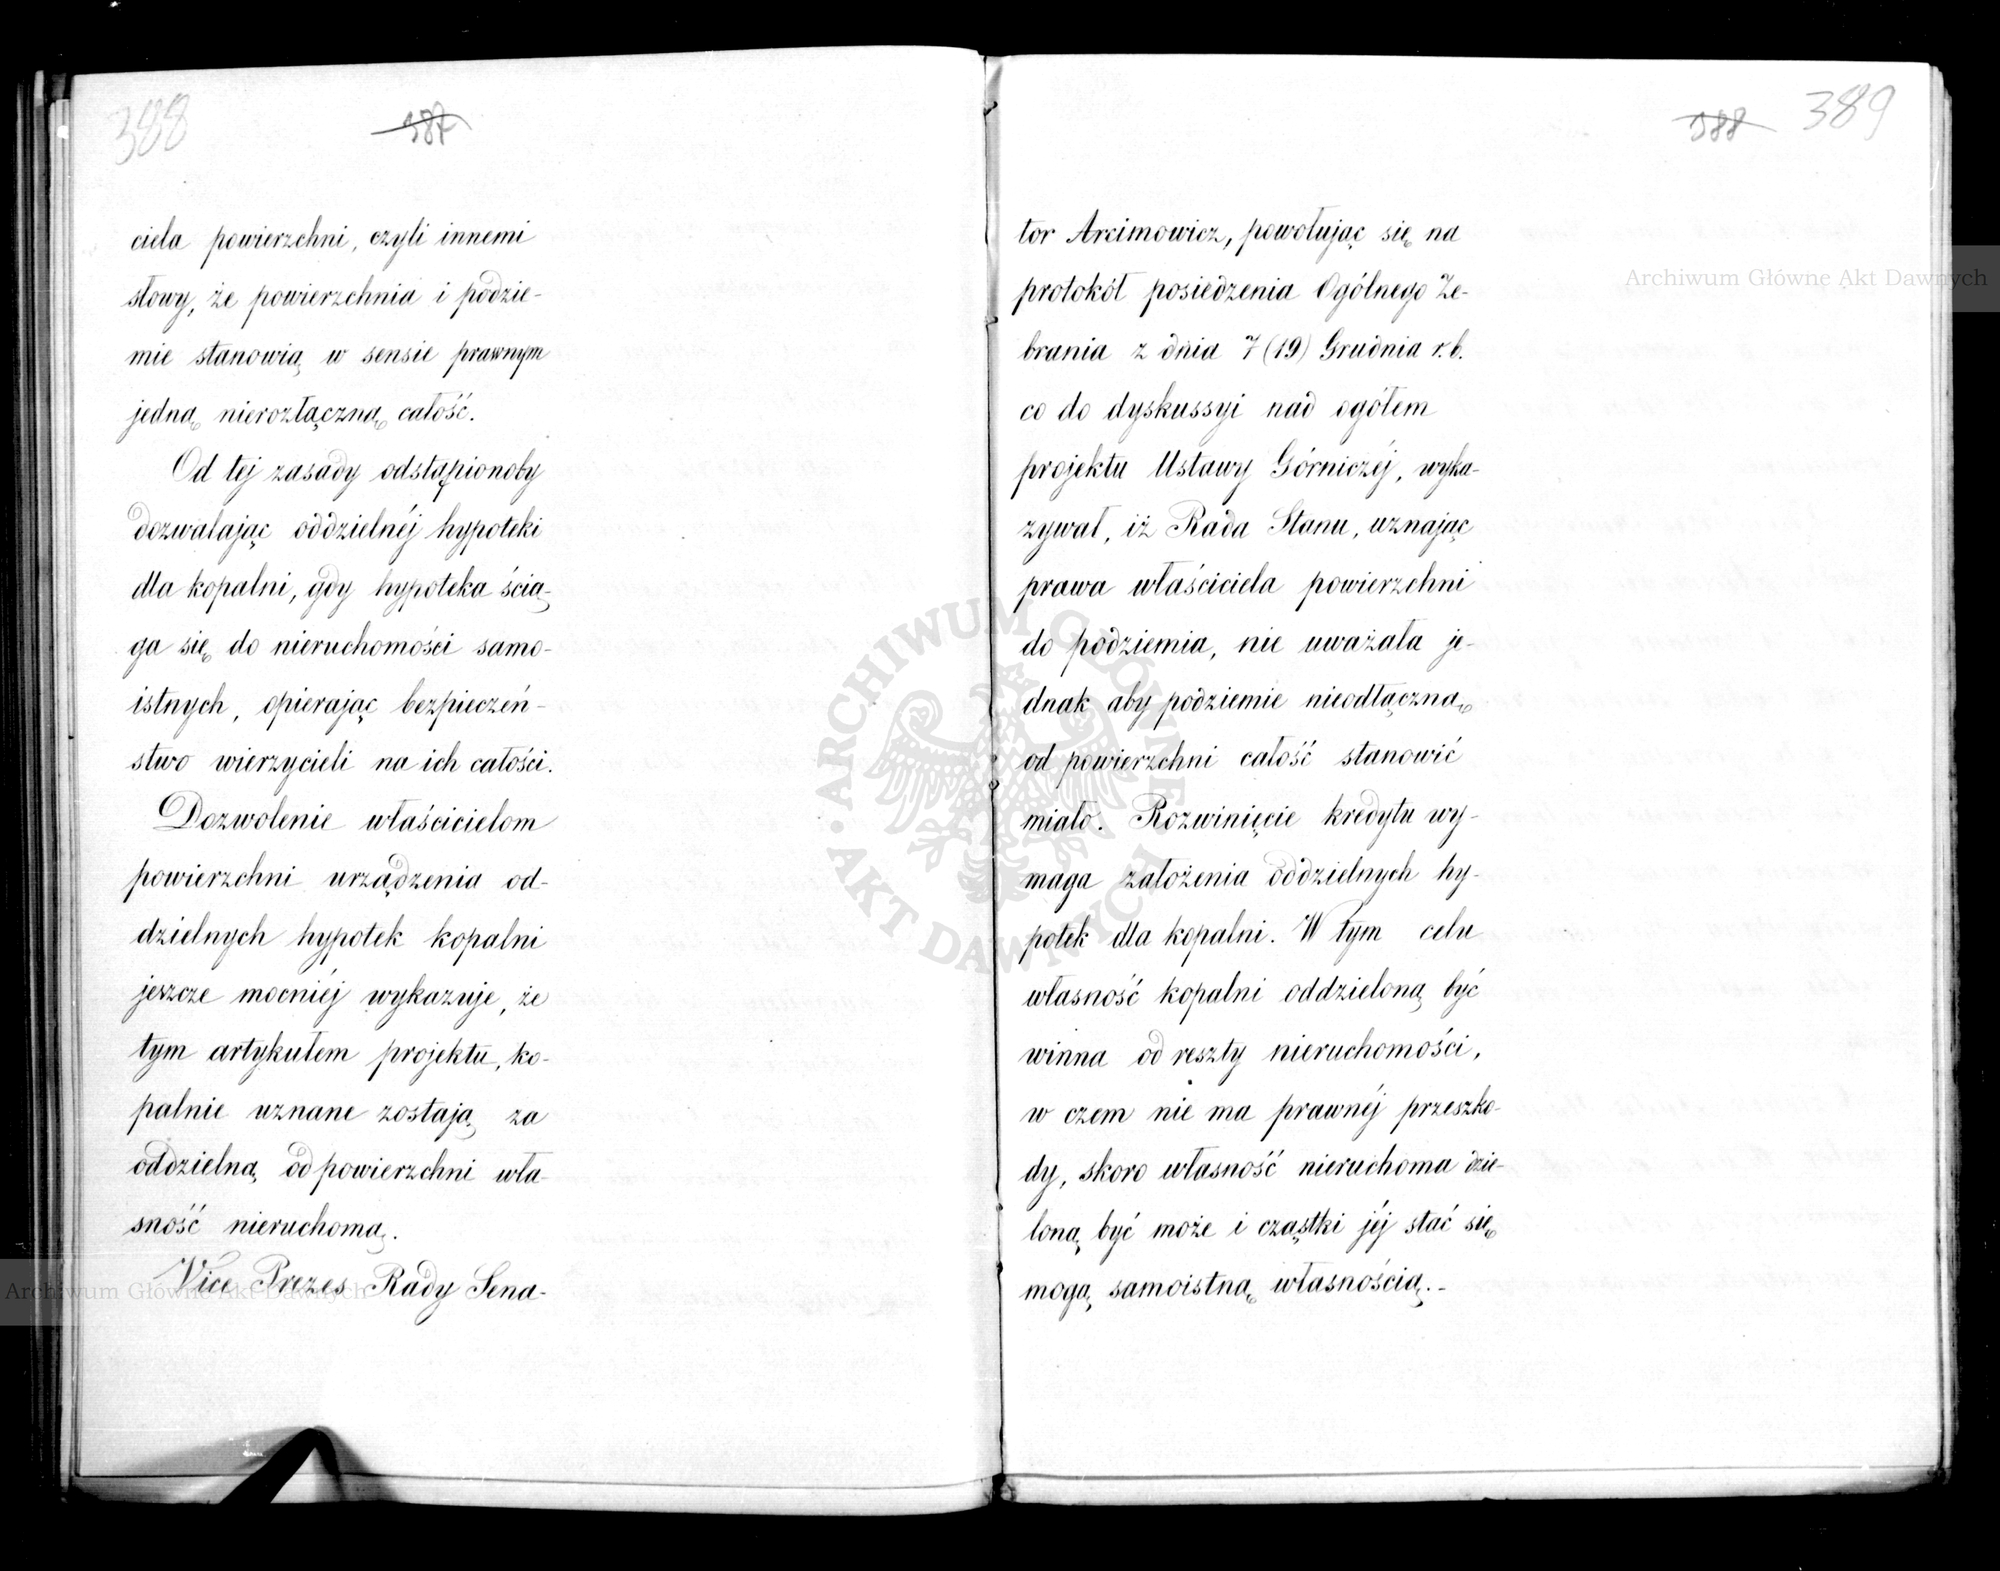 388
387
ciela powierzchni, czyli innemi
słowy, że powierzchnia i podzie-
mie stanowią w sensie prawnym
jedną nierozłączną całość.
Od tej zasady odstąpionoby
dozwalając oddzielnéj hypoteki
dla kopalni, gdy hypoteka ścią-
ga się do nieruchomości samo-
istnych, opierając bezpieczeń-
stwo wierzycieli na ich całości.
Dozwolenie właścicielom
powierzchni urządzenia od-
dzielnych hypotek kopalni
jeszcze mocniéj wykazuje, że
tym artykułem projektu, ko-
palnie uznane zostają za
oddzielną od powierzchni wła-
sność nieruchomą.
Vice Prezes Rady Sena-
388
389
tor Arcimowicz, powołując się na
protokół posiedzenia Ogólnego Ze-
brania z dnia 7 (19) Grudnia r.b.
co do dyskussyi nad ogółem
projektu Ustawy Górniczéj, wyka-
zywał, iż Rada Stanu, uznając
prawa właściciela powierzchni
do podziemia, nie uważała je-
dnak aby podziemie nieodłączną
od powierzchni całość stanowić
miało. Rozwinięcie kredytu wy-
maga założenia oddzielnych hy-
potek dla kopalni. W tym celu
własność kopalni oddzieloną być
winna od reszty nieruchomości,
w czem nie ma prawnéj przeszko-
dy, skoro własność nieruchoma dzie-
loną być może i cząstki jéj stać się
mogą samoistną własnością.-
Archiwum Główne Akt Dawnych
Archiwum Główne Akt Dawnych
ARCHIWUM GŁÓWNE · AKT DAWNYCH ·